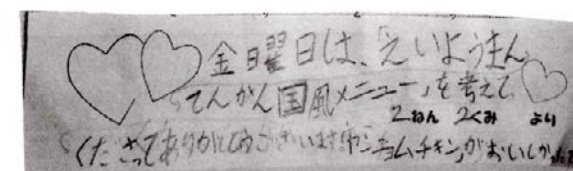 金曜日は、「えいようまん
てんかん国風メニュー」を考えて
2ねん 2くみ より
くださってありがとうございます。キムチキンがおいしかったです